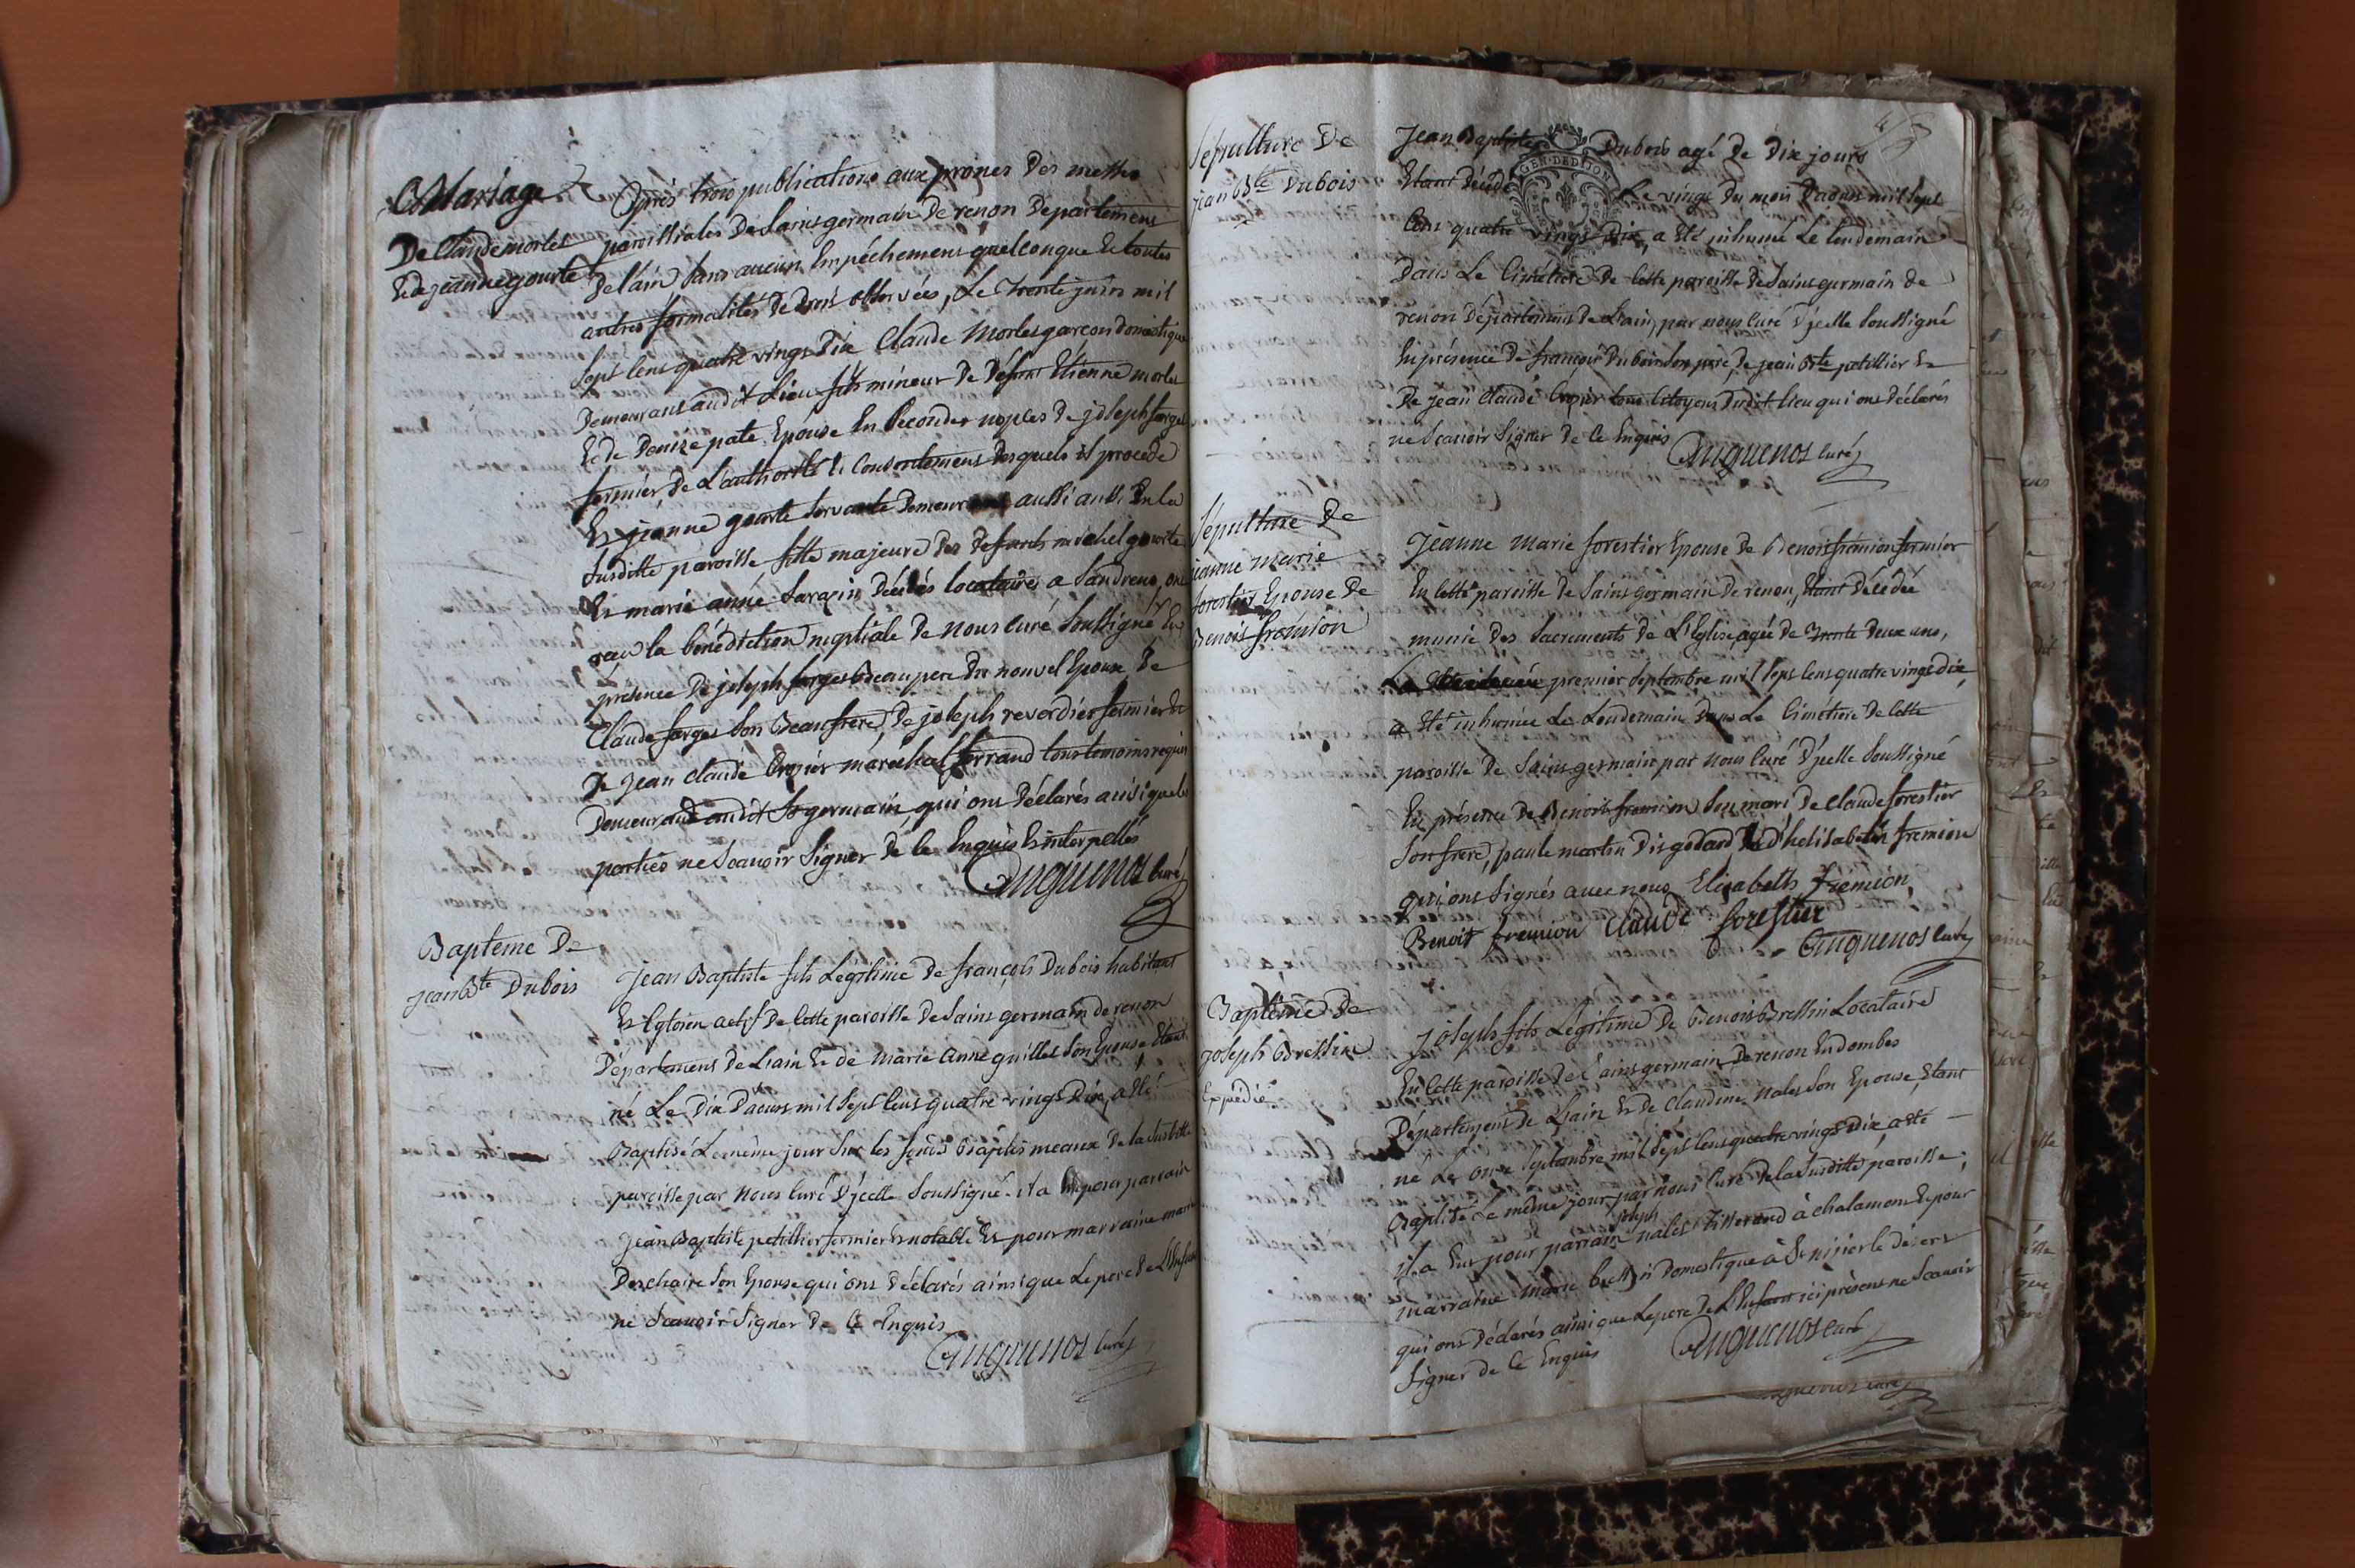 Mariage
De Claude morles
Et de jeanne gourte
Après trois publications aux prones des messes
paroissiales De Saint germain De renon Departement
De lain sans aucun Empéchement quelconque Et toutes
autres formalités de droit observées, Le trente juin mil
Sept Cens quatre vingt Dix Claude Morles garcon domestique
Demeurant audit Lieu fils mineur de Défunt Etienne morles
Et de Denise pate Epouse En Secondes nopces de joseph forges
fermier De L'authorité et Consentement Desquels il procede
Et jeanne gourte Servante Demeurant aussi aussi En la
Susditte paroisse fille majeure des defunts michel gourte
Et marie anne Sarazin Décédés locataires a Sandrens, ont
recu la bénédiction nuptiale de nous curé Soussigné En
presence De joseph forges Beaupere du nouvel Epoux, De
Claude forges Son Beaufrere, De joseph reverdier fermier Et
De Jean claude Crozier maréchal ferrand tous temoins requis
Demeurant audit St germain, qui ont déclarés ainsi que les
parties ne Scavoir Signer de ce Enquis Et interpellés
Cuquenos Curé
Bapteme De
jean Bte Dubois
Jean Baptiste fils Légitime de françois Dubois habitant
Et Cytoien actif De Cette paroisse De Saint germain de renon
Département De Lain Et de marie Anne guilles Son Epouse Etant
né Le Dix Daoust mil Sept Cens quatre vingt Dix, a Eté
Baptisé Le même jour Sur les fonds Baptismeaux de la Susditte
paroisse par nous Curé D'jcelle Soussigné. il a Eu pour parrain
Jean Baptiste petillier fermier Et notable Et pour marraine marie
Deschaire Son Epouse qui ont Déclarés ainsi que Le pere De L'Enfant
ne Scavoir Signer De Ce Enquis
Cuquenos Curé
Sépulture De
jean Bte Dubois
Jean Baptiste Dubois agé De Dix jours
Etant Décédé Le vingt Du mois Daoust mil Sept
Cens quatre vingt Dix, a Eté inhumé Le lendemain
Dans Le Cimétiere De Cette paroisse De Saint germain de
renon Département De Lain, par nous Curé D'jcelle Soussigné
En présence De françois Dubois Son père, De jean Bte petillier Et
De jean Claude Crozier tous Citoyens Dudit lieu qui ont déclarés
ne Scavoir Signer De Ce Enquis
Cuquenos Curé
Sépulture De
jeanne marie
forestier Epouse De
Benoit fremion
Jeanne Marie forestier Epouse De Benoit fremion fermier
En Cette paroisse De Saint germain de renon, Etant Décédée
munie Des Sacrements De L'Eglise, agée De Trente Deux ans,
Le premier Septembre mil Sept Cens quatre vingt Dix,
a Eté inhumée Le Lendemain Dans Le Cimétiere De Cette
paroisse De Saint germain par nous Curé D'jcelle Soussigné
En présence De Benoit fremion Son mari, De Claude forestier
Son frere, paule martin Disgodard Et d'helisabeth fremion
qui ont Signés avec nous Elizabeth fremion
Benoit fremion Claude forestier
Cuquenos Curé
Baptême De
joseph Bressin
Expédié
Joseph fils Légitime De Benoit Bressin Locataire
En Cette paroisse De Saint germain De renon En dombes
Département De Lain Et De Claudine nales Son Epouse, Etant
né Le onze Septembre mil Sept Cens quatre vingt Dix, a Eté
Baptisé Le même jour par nous Curé De la Susditte paroisse,
joseph
il a Eu pour parrain nales tisserand à chalamont Et pour
marraine marie bressin Domestique à St nizier le désert
qui ont Déclarés ainsi que Le pere De L'Enfant ici présent ne Scavoir
Signer De Ce Enquis
Cuquenos Curé